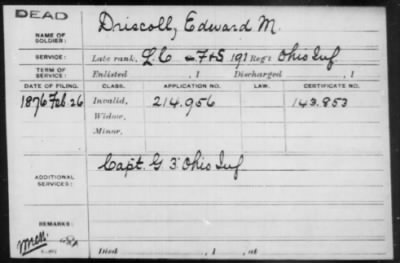 DEAD
NAME OF SOLDIER: Driscoll, Edward M.
SERVICE: Late rank, L.C. F+S 191 Reg't Ohio Inf
TERM OF SERVICE: Enlisted , 1 Discharged , 1
DATE OF FILING. CLASS. APPLICATION NO. LAW. CERTIFICATE NO.
1876 Feb. 26 Invalid, 214.956 143.853
Widow,
Minor,
ADDITIONAL SERVICES: Capt. G 3" Ohio Inf
REMARKS:
Died , 1 , at